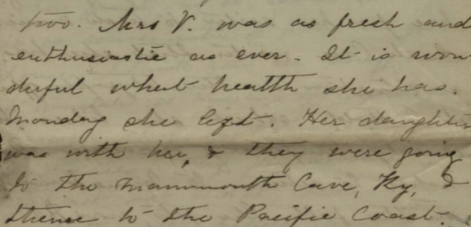 too. Mrs V. was as fresh and
enthusiastic as ever. It is won
derful what health she has.
Monday she left. Her daughter
was with her, & they were going
to the Mammouth Cave, Ky, &
thence to the Pacific Coast.